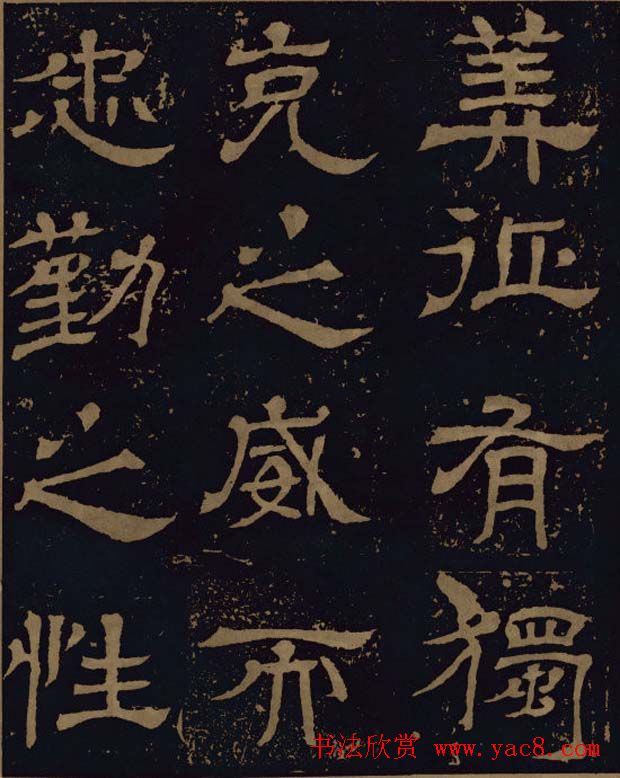 征有獨
克之威而
忠勤之性
书法欣赏 www.yac8.com